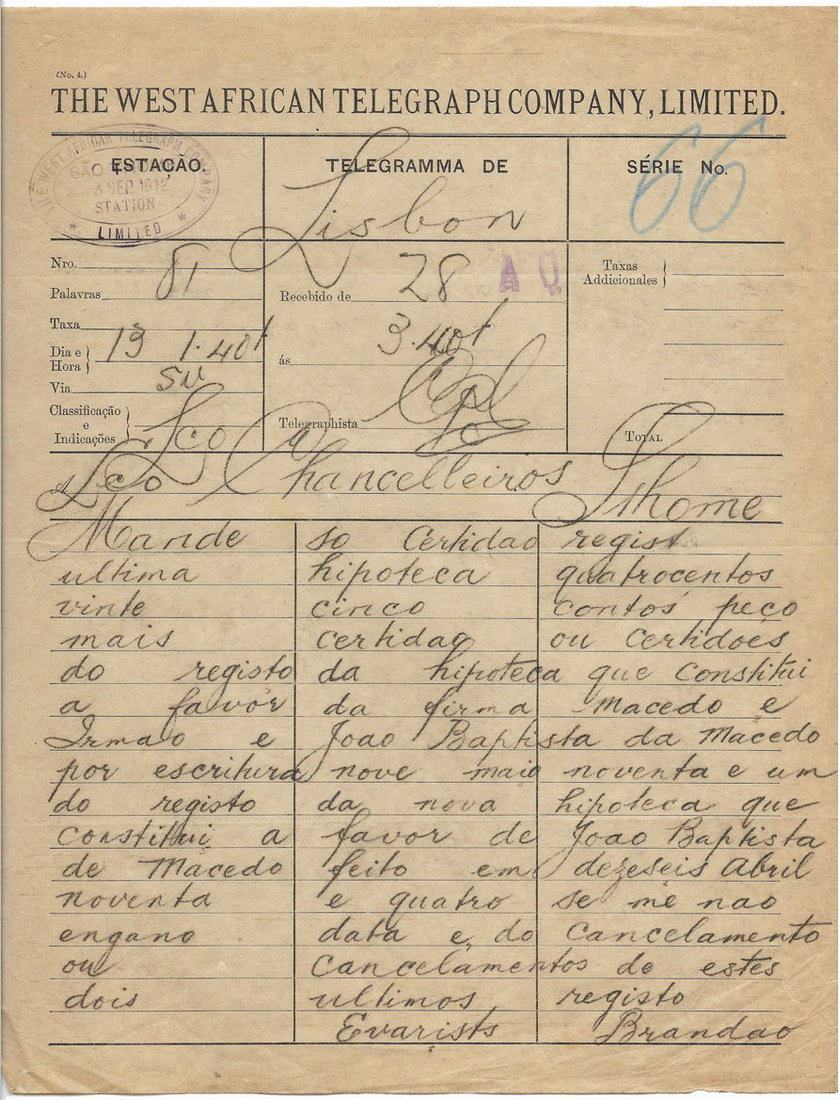 (No. 4.)
THE WEST AFRICAN TELEGRAPH COMPANY, LIMITED.
THE WEST AFRICAN TELEGRAPH COMPANY
3 SEP 1912
STATION
LIMITED
ESTAÇÃO.
TELEGRAMMA DE
SÉRIE No.
Lisbon
66
Nro.
Palavras 81
Taxa
Dia e Hora 13 1.40t
Via
Classificação e Indicações Lco
Recebido de 28 A Q
ás 3.40t
Telegraphista
Taxas Addicionales
TOTAL
Lco Chancelleiros Sthome
Mande so Certidao regist
ultima hipoteca quatrocentos
vinte cinco contos peço
mais certidao ou Certidoes
do registo da hipoteca que Constitui
a favor da firma Macedo e
Irmao e Joao Baptista da Macedo
por escritura nove maio noventa e um
do registo da nova hipoteca que
constitui a favor de Joao Baptista
de Macedo feito em dezeseis Abril
noventa e quatro se me nao
engano data e do Cancelamento
ou Cancelamentos de estes
dois ultimos registo
Evarists Brandao